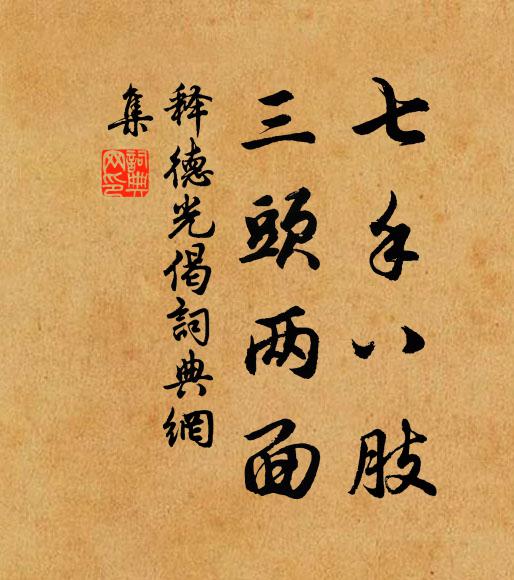 七手八肢
三頭两面
释德光偈詞典網
集
詞典
网印